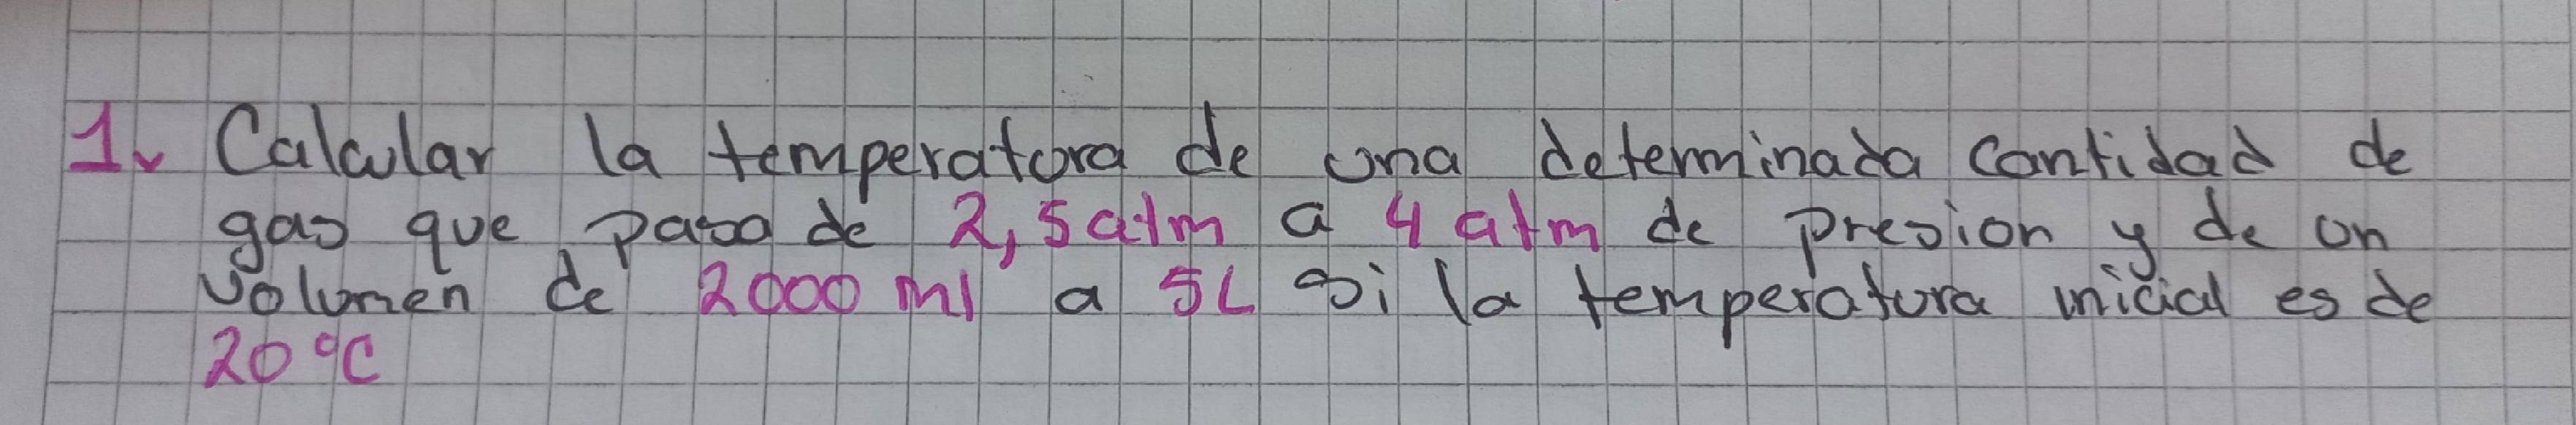 1. Calcular la temperatura de una determinada cantidad de
gas que pasa de 2,5atm a 4 atm de presion y de un
volumen de 2000 ml a 5L si la temperatura inicial es de
20 °C